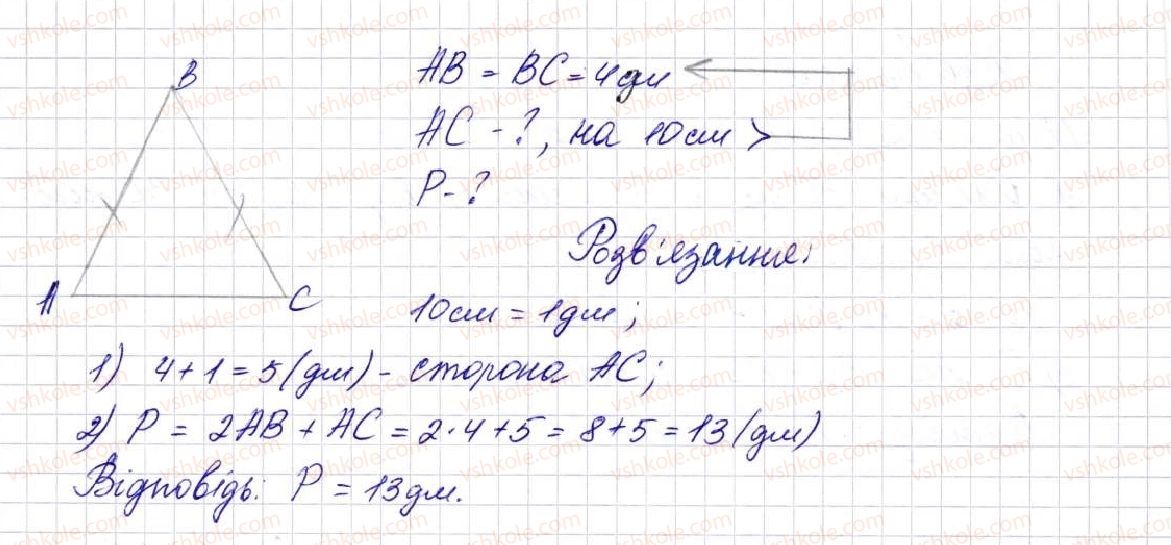 B
AB = BC = 4дм
AC - ?, на 10см >
P - ?
Розв'язання:
A
C
10см = 1дм;
1) 4+1=5(дм) - сторона AC;
2) P = 2AB + AC = 2·4+5 = 8+5 = 13(дм)
Відповідь: P = 13дм.
vshkole.com